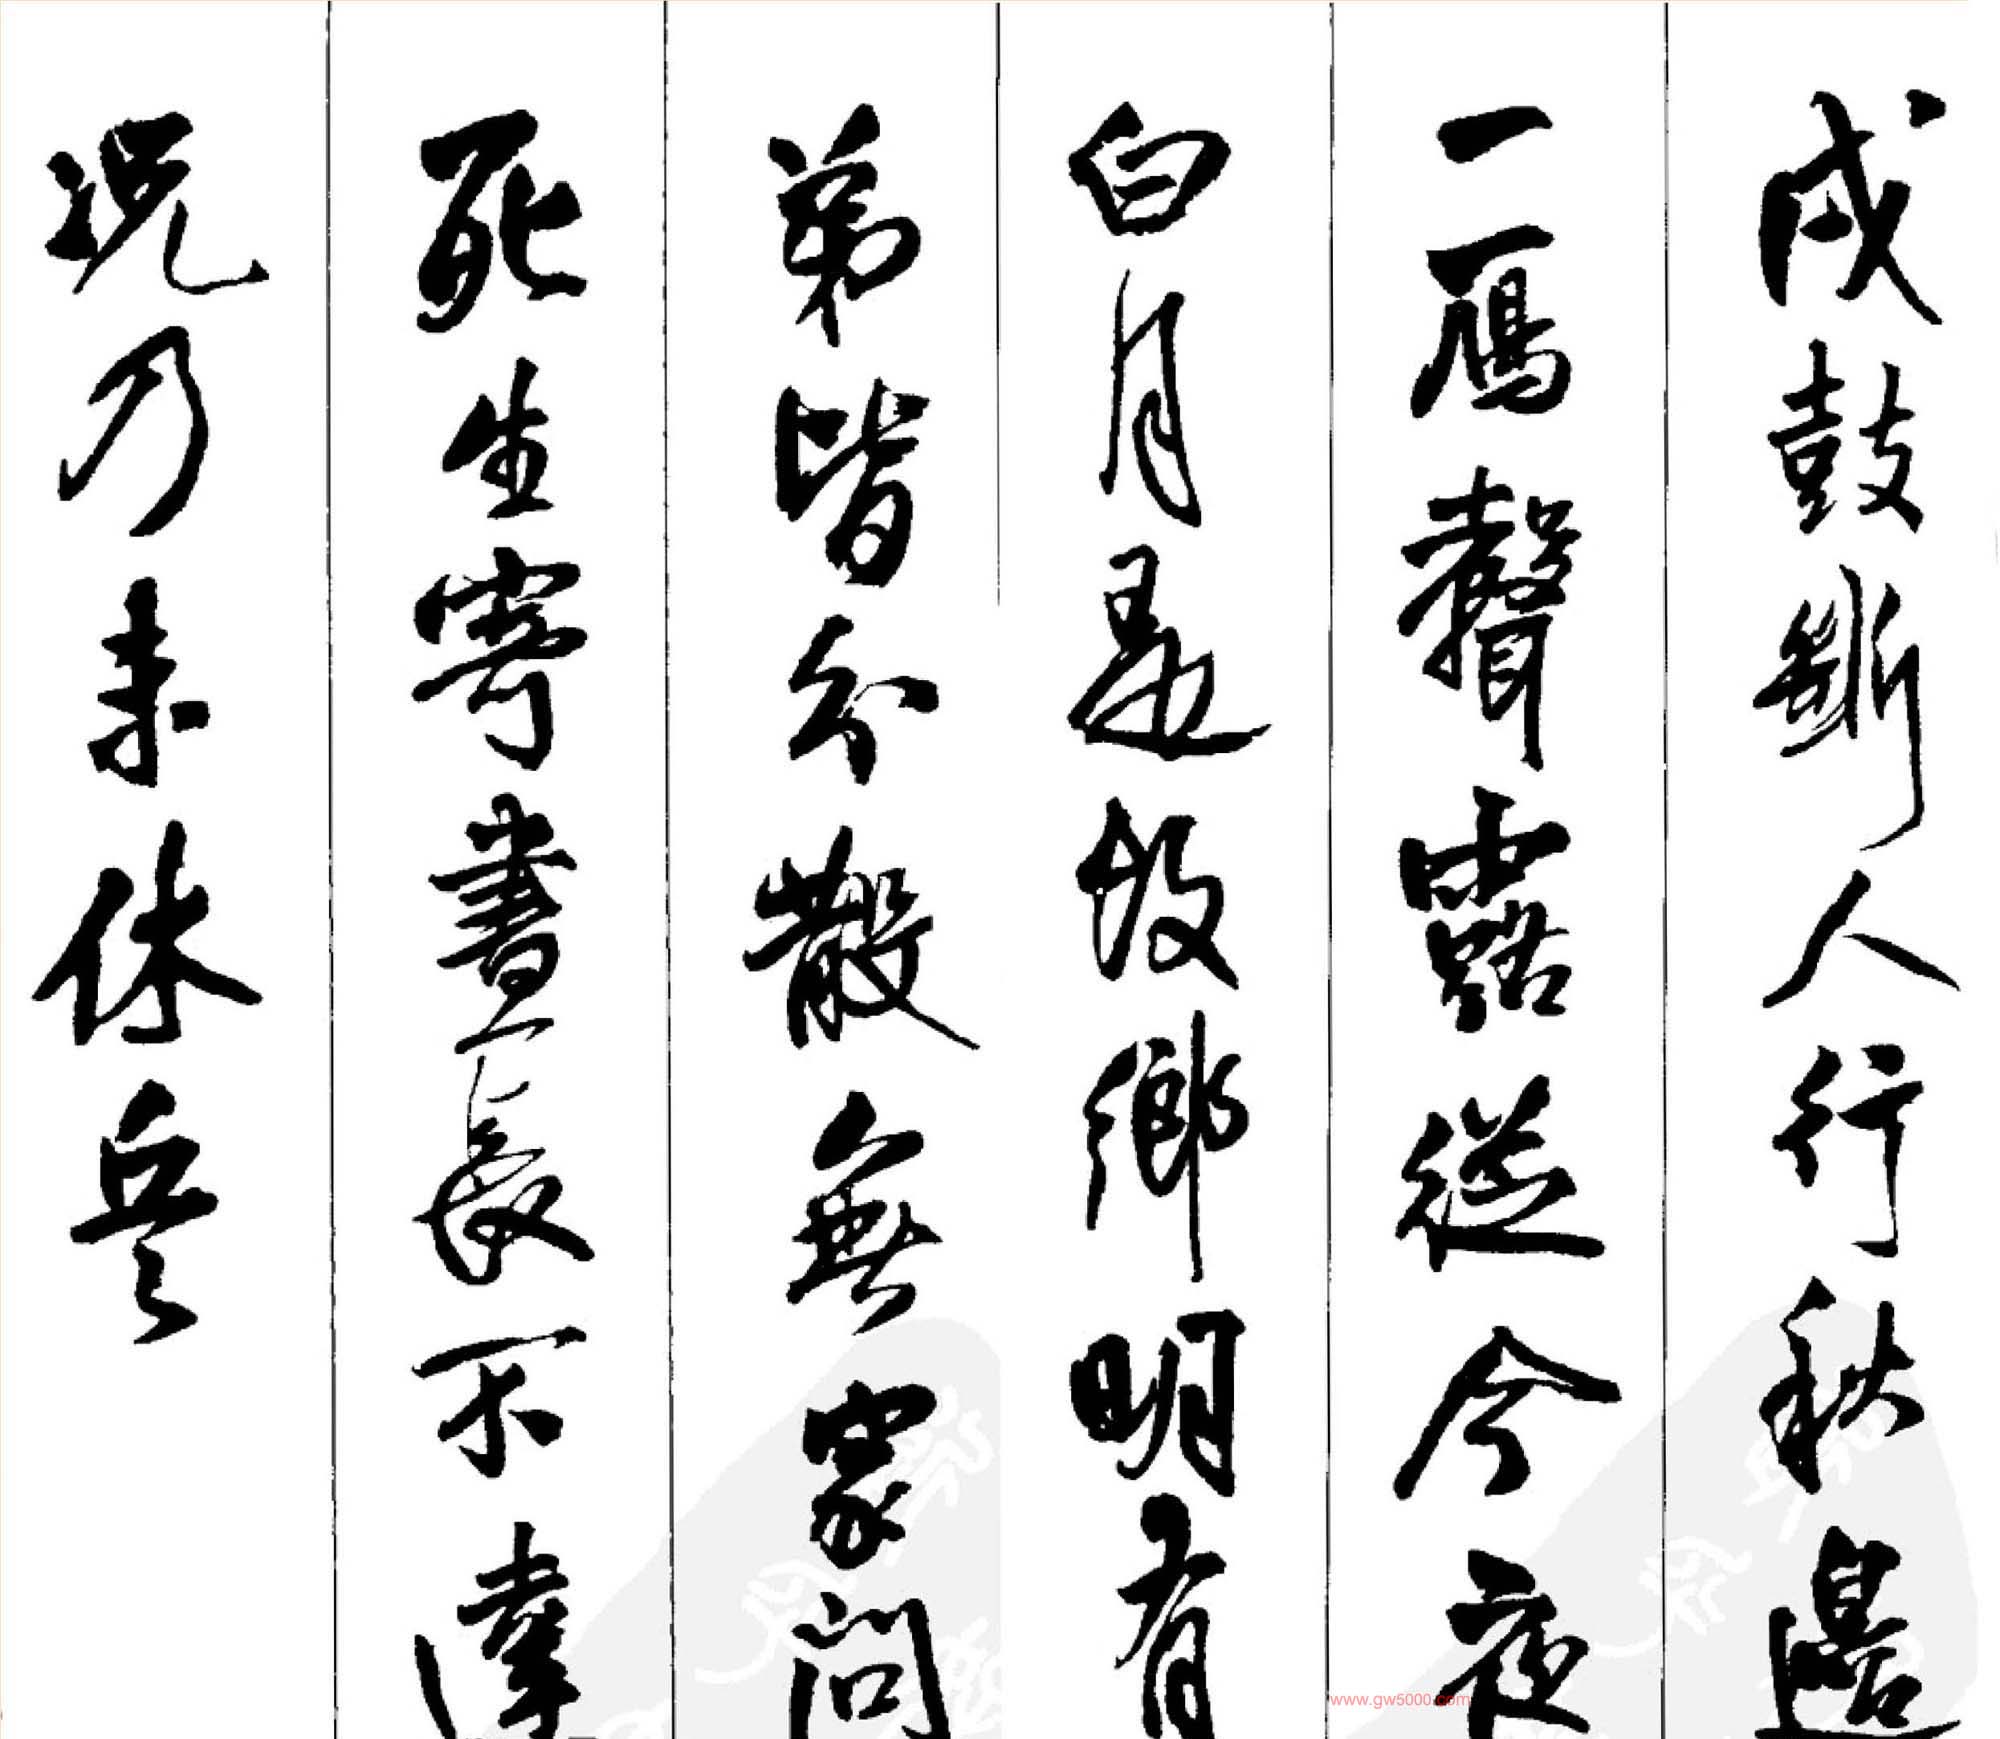 戍鼓斷人行秋邊
一鴈聲露從今夜
白月是故鄉明有
弟皆分散無家問
死生寄書長不達
況乃未休兵
www.gw5000.com